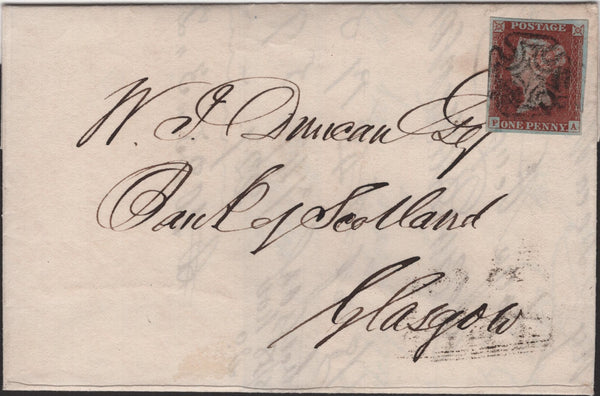 POSTAGE
P A
ONE PENNY
W. J. Duncan Esq
Bank of Scotland
Glasgow